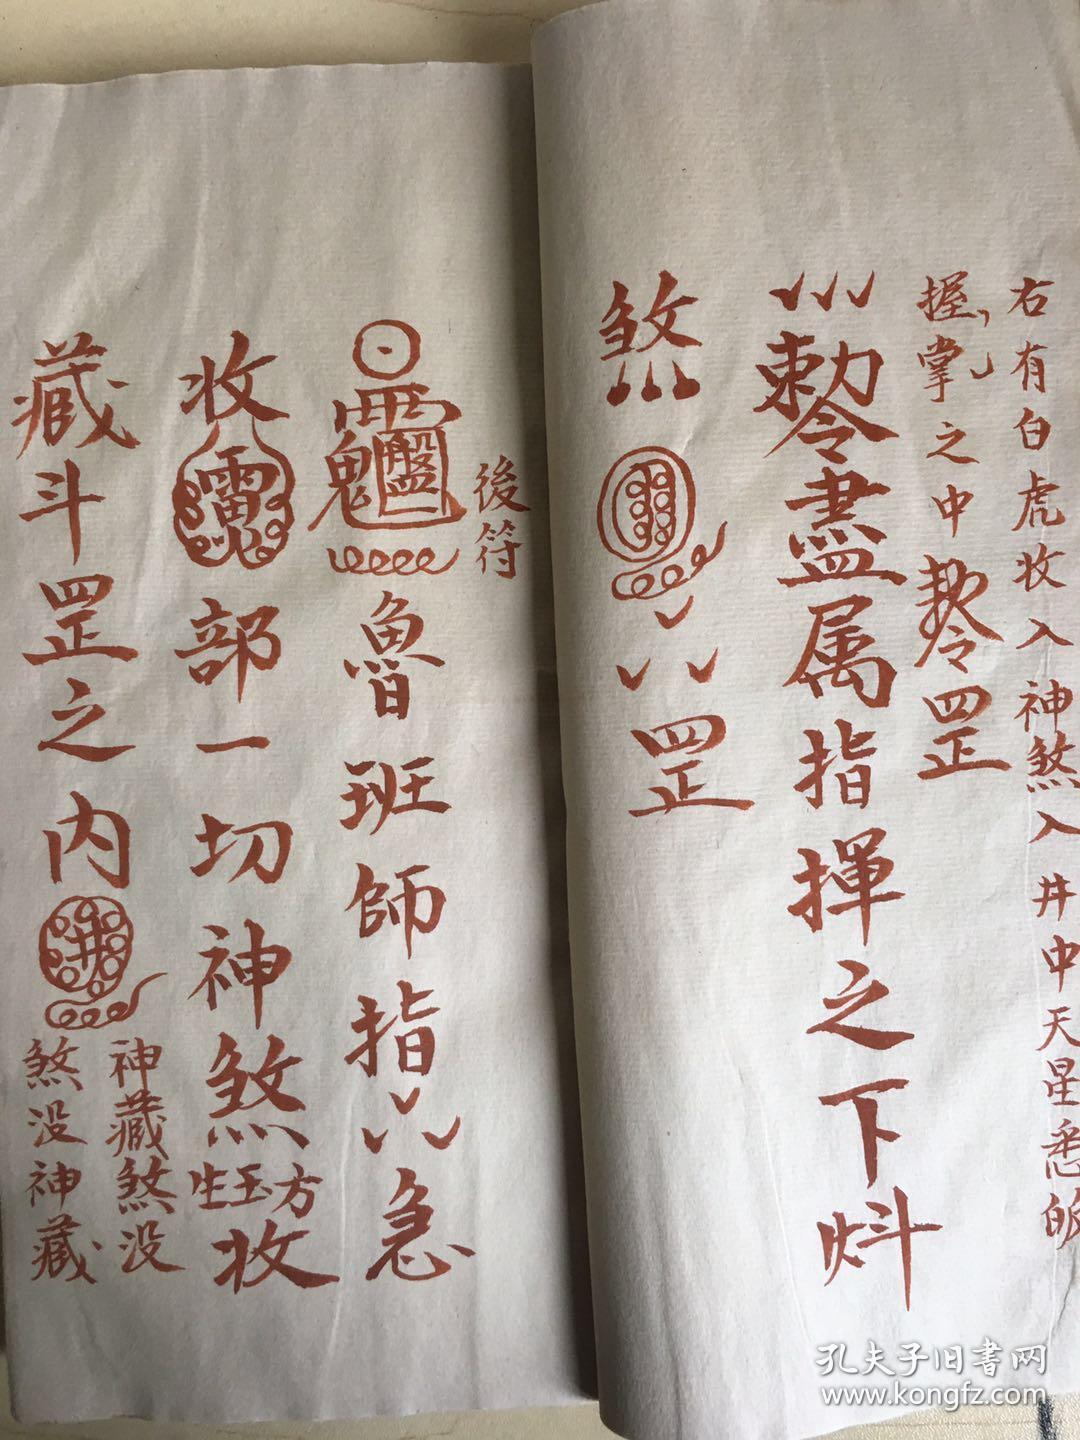 右有白虎收入神煞入井中天星悉
握掌之中 敕令罡
敕令盡属指揮之下
煞
罡
後符
魯班師指急
收 部一切神煞 方收
藏斗罡之内
神藏煞没
煞没神藏
孔夫子旧書网
www.kongfz.com